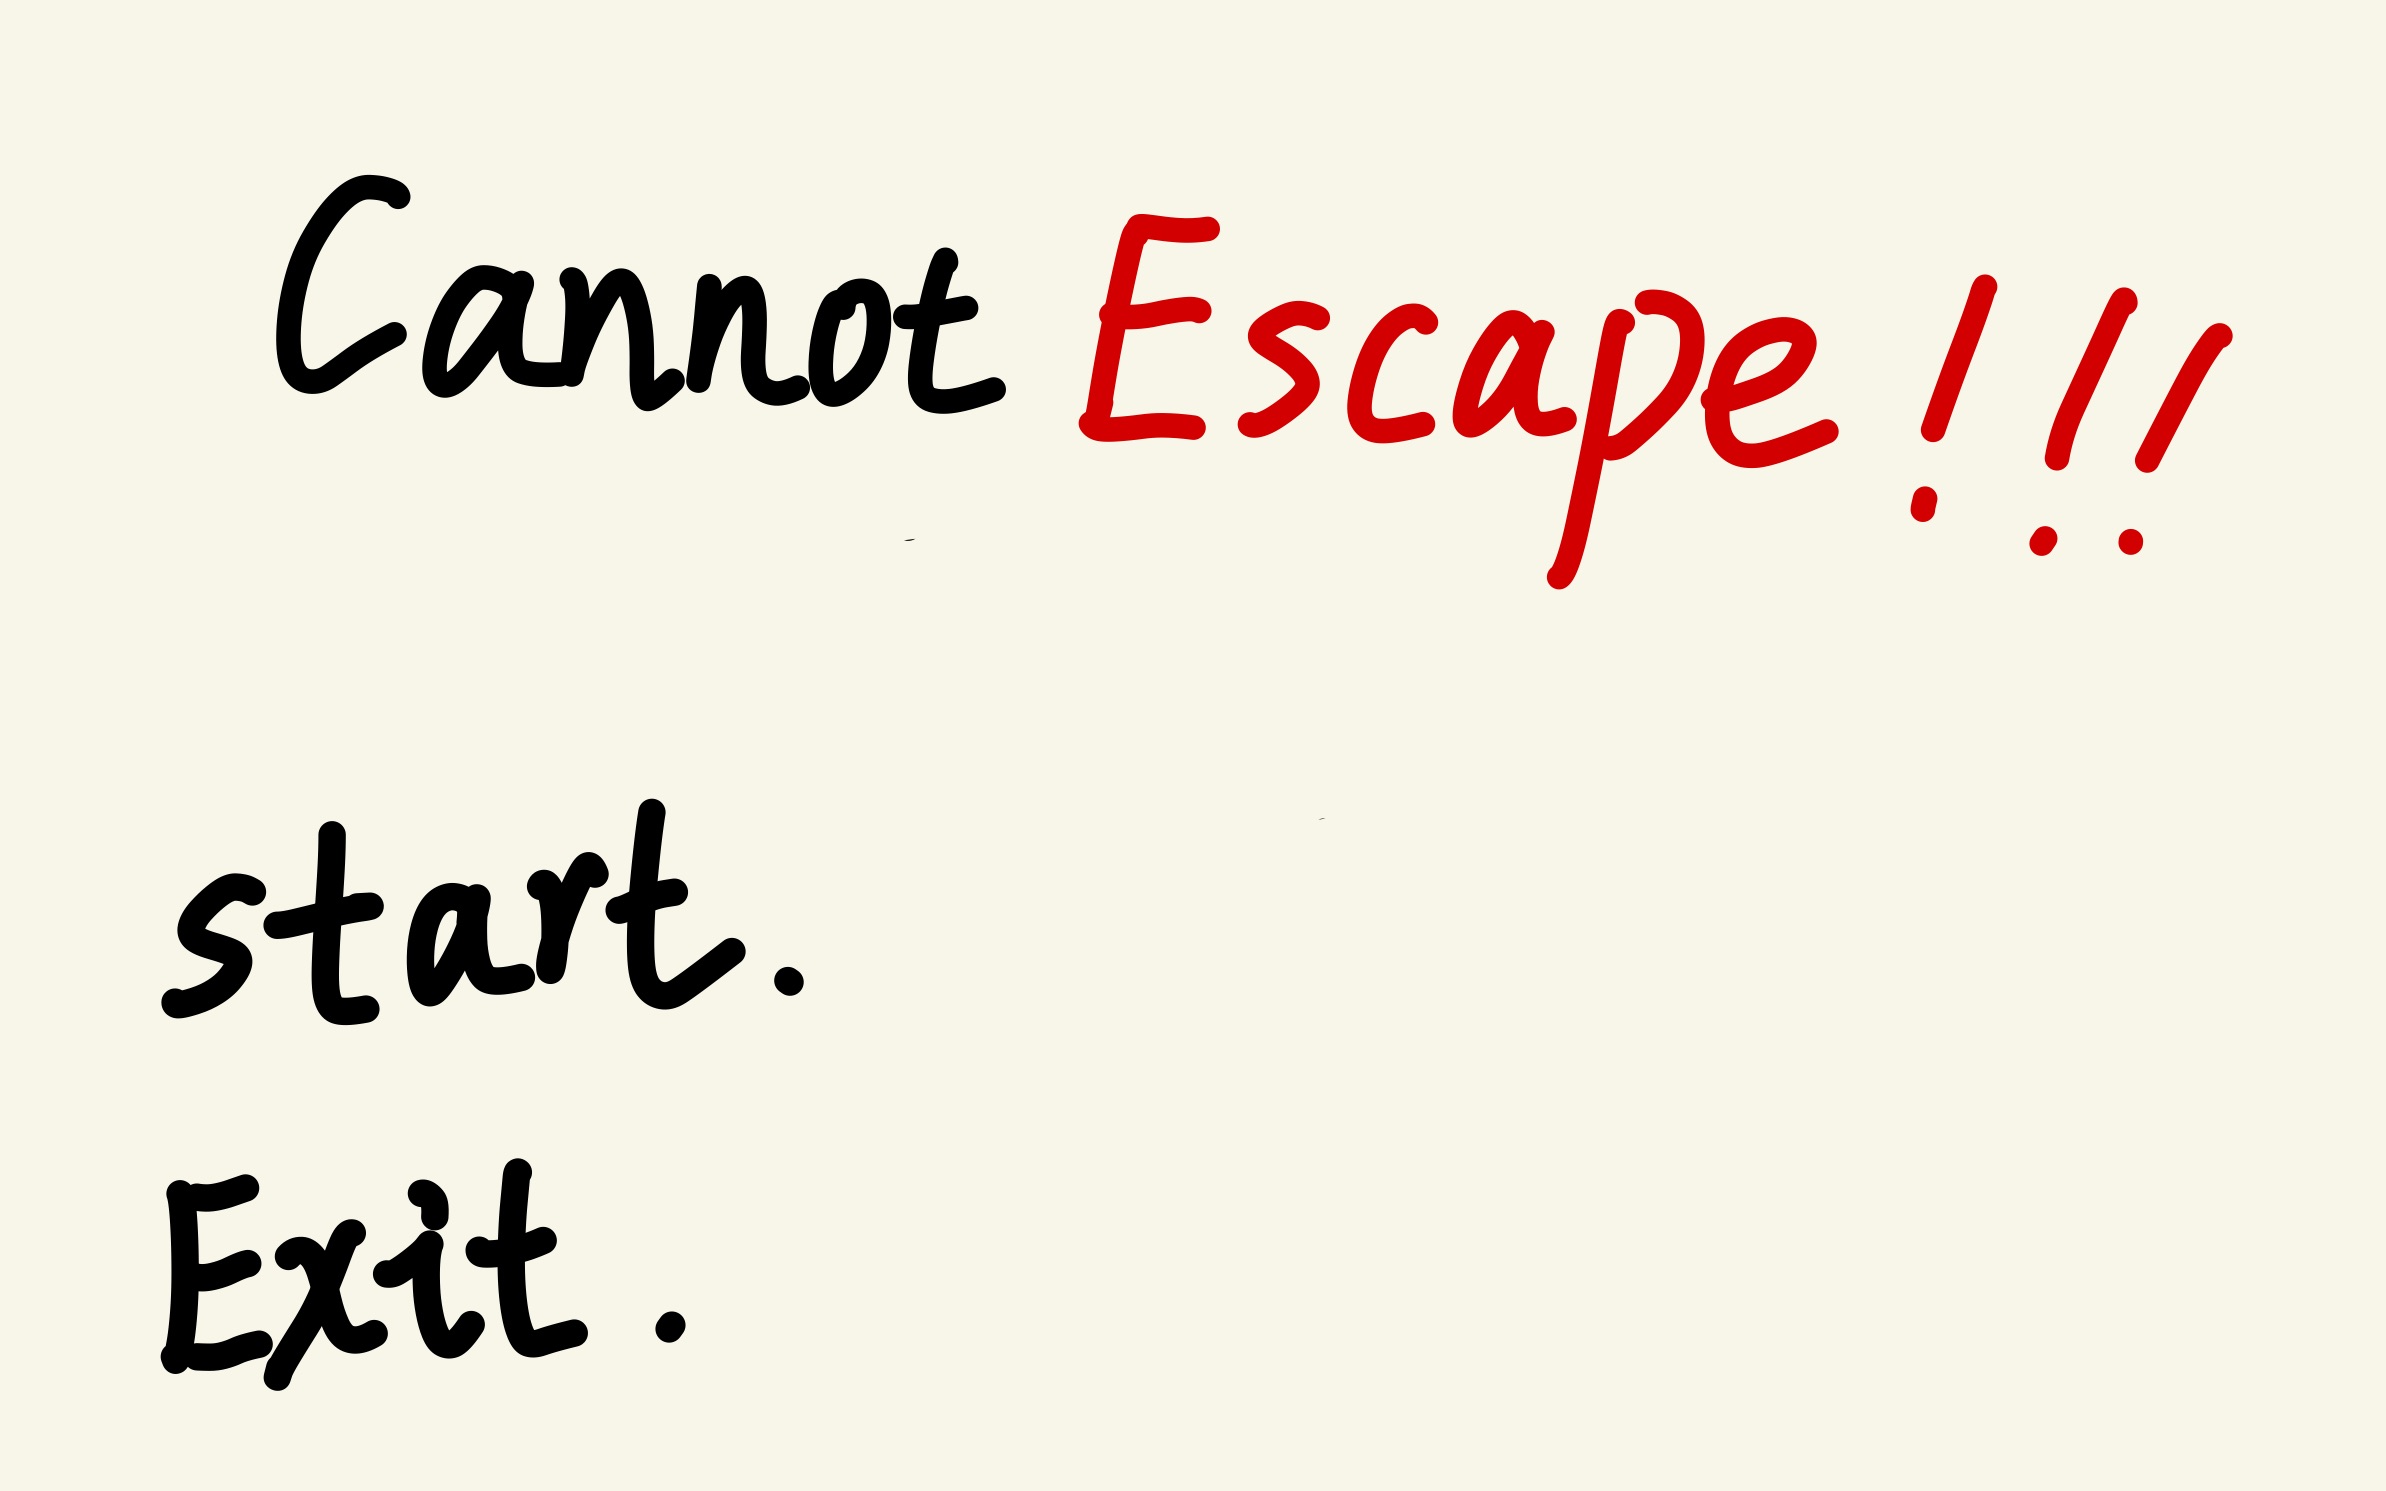 Cannot Escape!!!
start.
Exit.